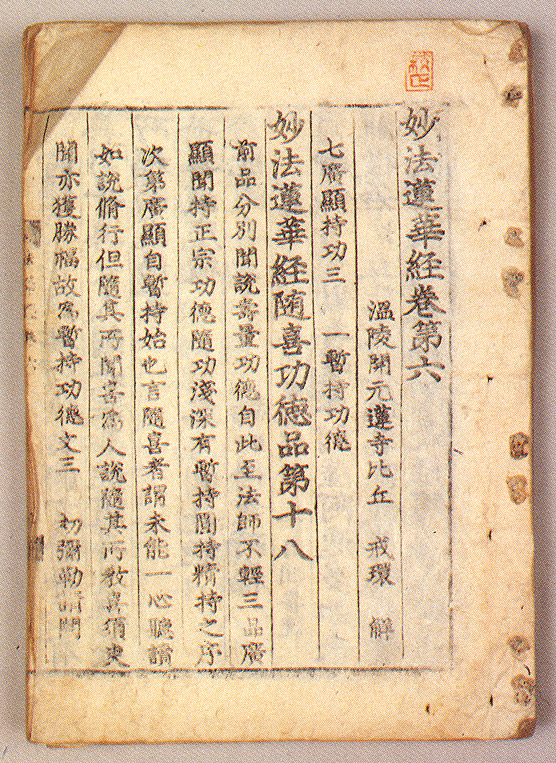 妙法蓮華経卷第六
溫陵開元蓮寺比丘 戒環 解
七廣顯持功三 一暫持功德
妙法蓮華経随喜功德品第十八
前品分別聞說壽量功德自此至法師不輕三品廣
顯聞持正宗功德隨功淺深有暫持圓持精持之序
次第廣顯自暫持始也言隨喜者謂未能一心聽讀
如說脩行但隨其所聞喜為人說隨其所教喜須臾
聞亦獲勝福故為暫持功德文三 初彌勒請問